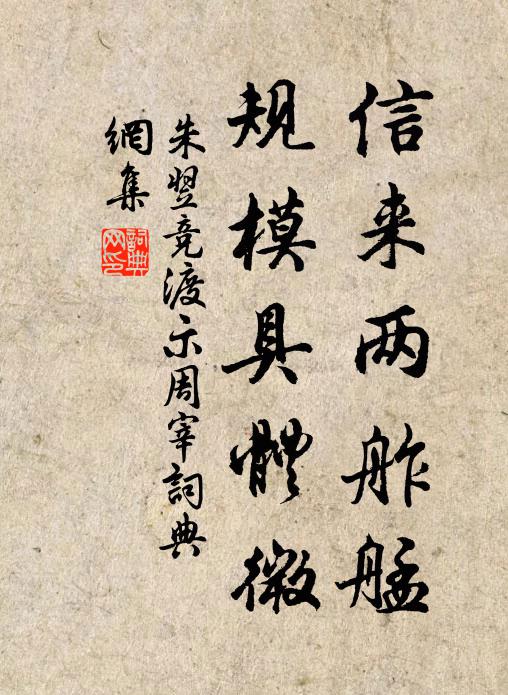 信来两舴艋
规模具體微
朱翌竞渡示周宰詞典
網集
詞典
网印